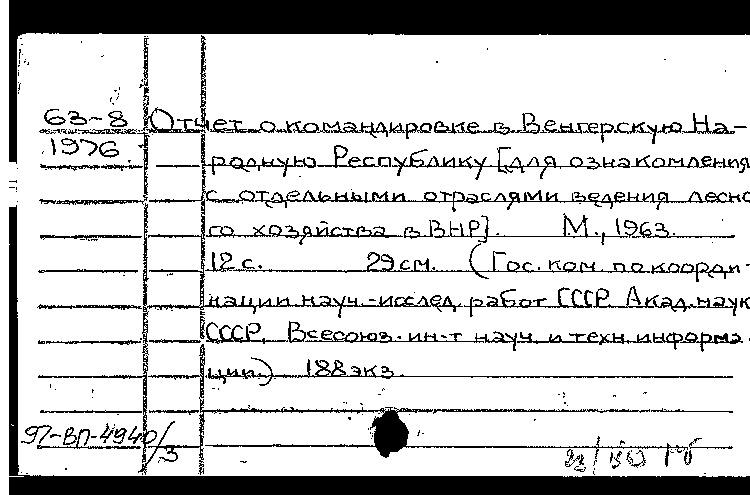 63-8 Отчет о командировке в Венгерскую На-
1976 родную Республику [для ознакомления
с отдельными отраслями ведения лесно
го хозяйства в ВНР]. М., 1963.
12 с. 29 см. (Гос. ком. по коорди-
нации науч.-исслед. работ СССР. Акад. наук
СССР. Всесоюз. ин-т науч. и техн. информа
ции.) 188 экз.
97-ВП-4940/3